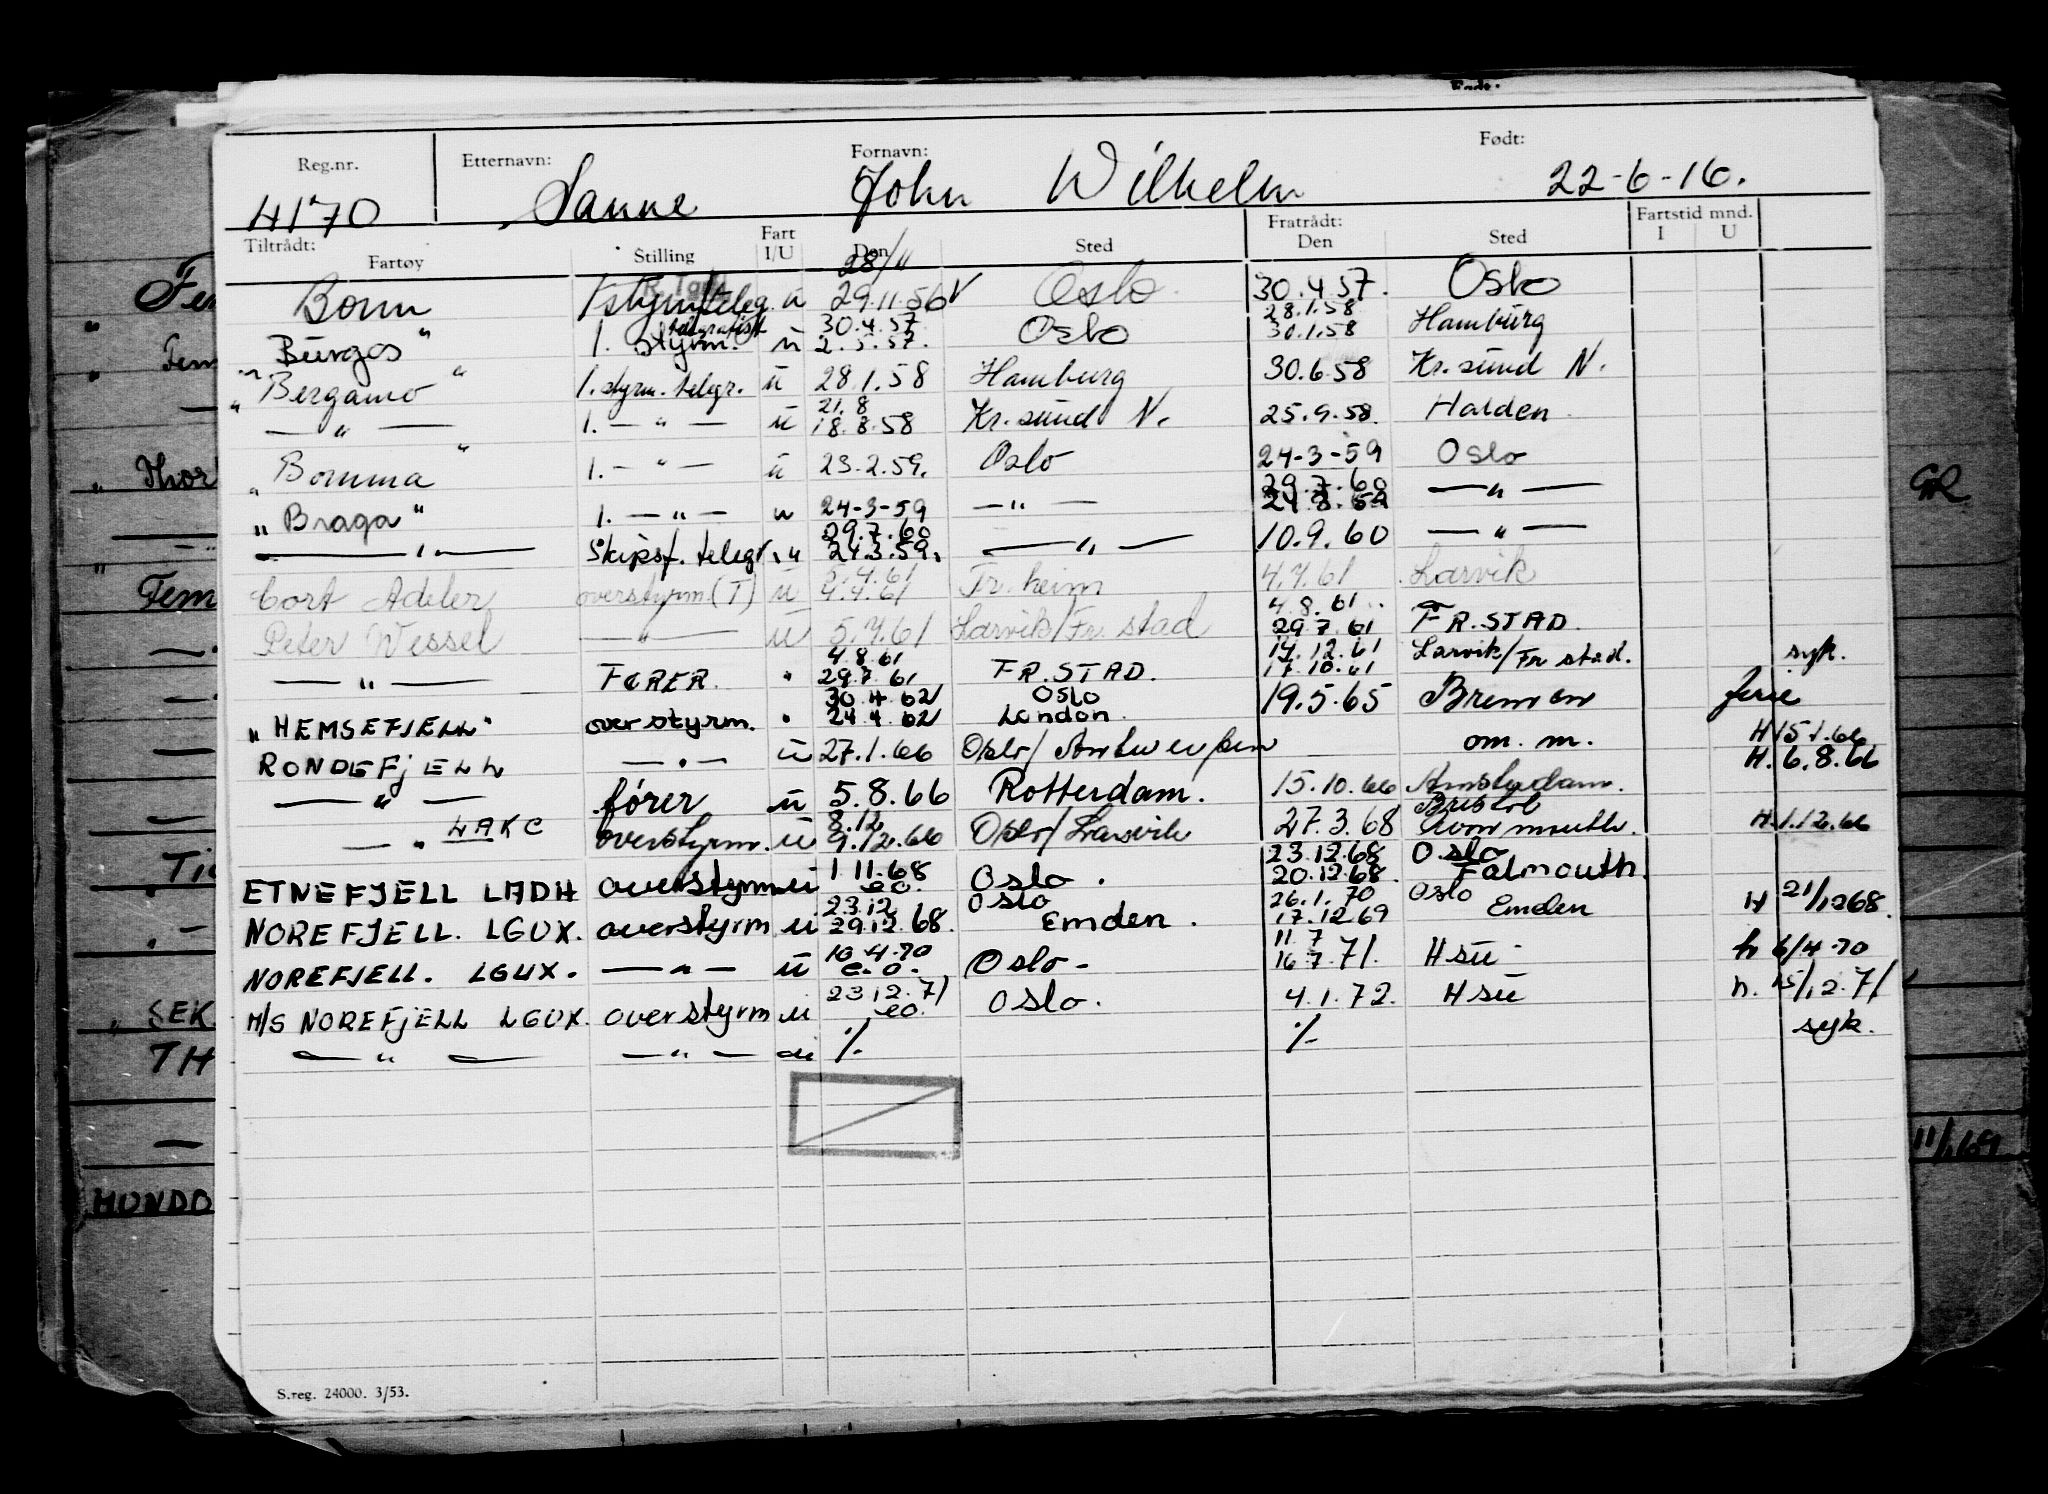 Født:
Reg.nr. Etternavn: Fornavn: Født:
4170 Sanne John Wilhelm 22-6-16.
Tiltrådt: Fartøy Stilling Fart I/U Den Sted Fratrådt: Den Sted Fartstid mnd. I U
28/11
Bomm 1 styrm teleg. u 29.11.56 V Oslo. 30.4.57. Oslo
telegrafist 30.4.57. 28.1.58
Burgos" 1. styrm. u 2.5.57. Oslo 30.1.58 Hamburg
"Bergamo" 1. styrm. telegr. u 28.1.58 Hamburg 30.6.58 Kr.sund N.
21.8
— " — 1. — " — u 18.8.58 Kr.sund N. 25.9.58. Halden
"Bomma" 1. — " — u 23.2.59. Oslo 24-3-59 Oslo
29.7.60
"Braga" 1. — " — u 24-3-59 — " — 24.8.59 — " —
29.7.60
— " — Skipsf. telegr. u 24.3.59. — " — 10.9.60 — " —
Cort Adeler overstyrm (T) u 4.4.61 Tr.heim 4.7.61 Larvik
4.8.61
Peter Wessel — " — u 5.7.61 Larvik/Fr.stad 29.7.61 FR.STAD.
4.8.61 14.12.61
— " — FØRER. " 29.7.61 FR.STAD. 17.10.61 Larvik/Fr stad. syk.
30.4.62 Oslo
"HEMSEFJELL" overstyrm. " 24.4.62 London. 19.5.65 Bremen ferie
RONDEFJELL — " — u 27.1.66 Oslo/Antwerpen om. m. H 15.1.66
— " — fører u 5.8.66 Rotterdam. 15.10.66 Amsterdam. H. 6.8.66
8.12 Bristol
— " LAKC overstyrm. u 9.12.66 Oslo/Larvik 27.3.68 Avonmouth. H.1.12.66
1.11.68 23.12.68 Oslo
ETNEFJELL LADH overstyrm u eo. Oslo. 20.12.68. Falmouth.
23.12 Oslo 26.1.70 Oslo
NOREFJELL. LGUX. overstyrm u 29.12.68. Emden. 17.12.69 Emden H 21/12 68.
10.4.70 11.7
NOREFJELL. LGUX. — " — u e.o. Oslo- 16.7.71. Hsu h 6/4-70
23.12.71
M/S NOREFJELL LGUX. overstyrm u eo. Oslo. 4.1.72. Hsu h. 15/12.71
— " — — " — u ./- ./- syk.
S.reg. 24000. 3/53.
Fem
Thor
Fem
SEK
TH
MONDO
GR
11/1 69